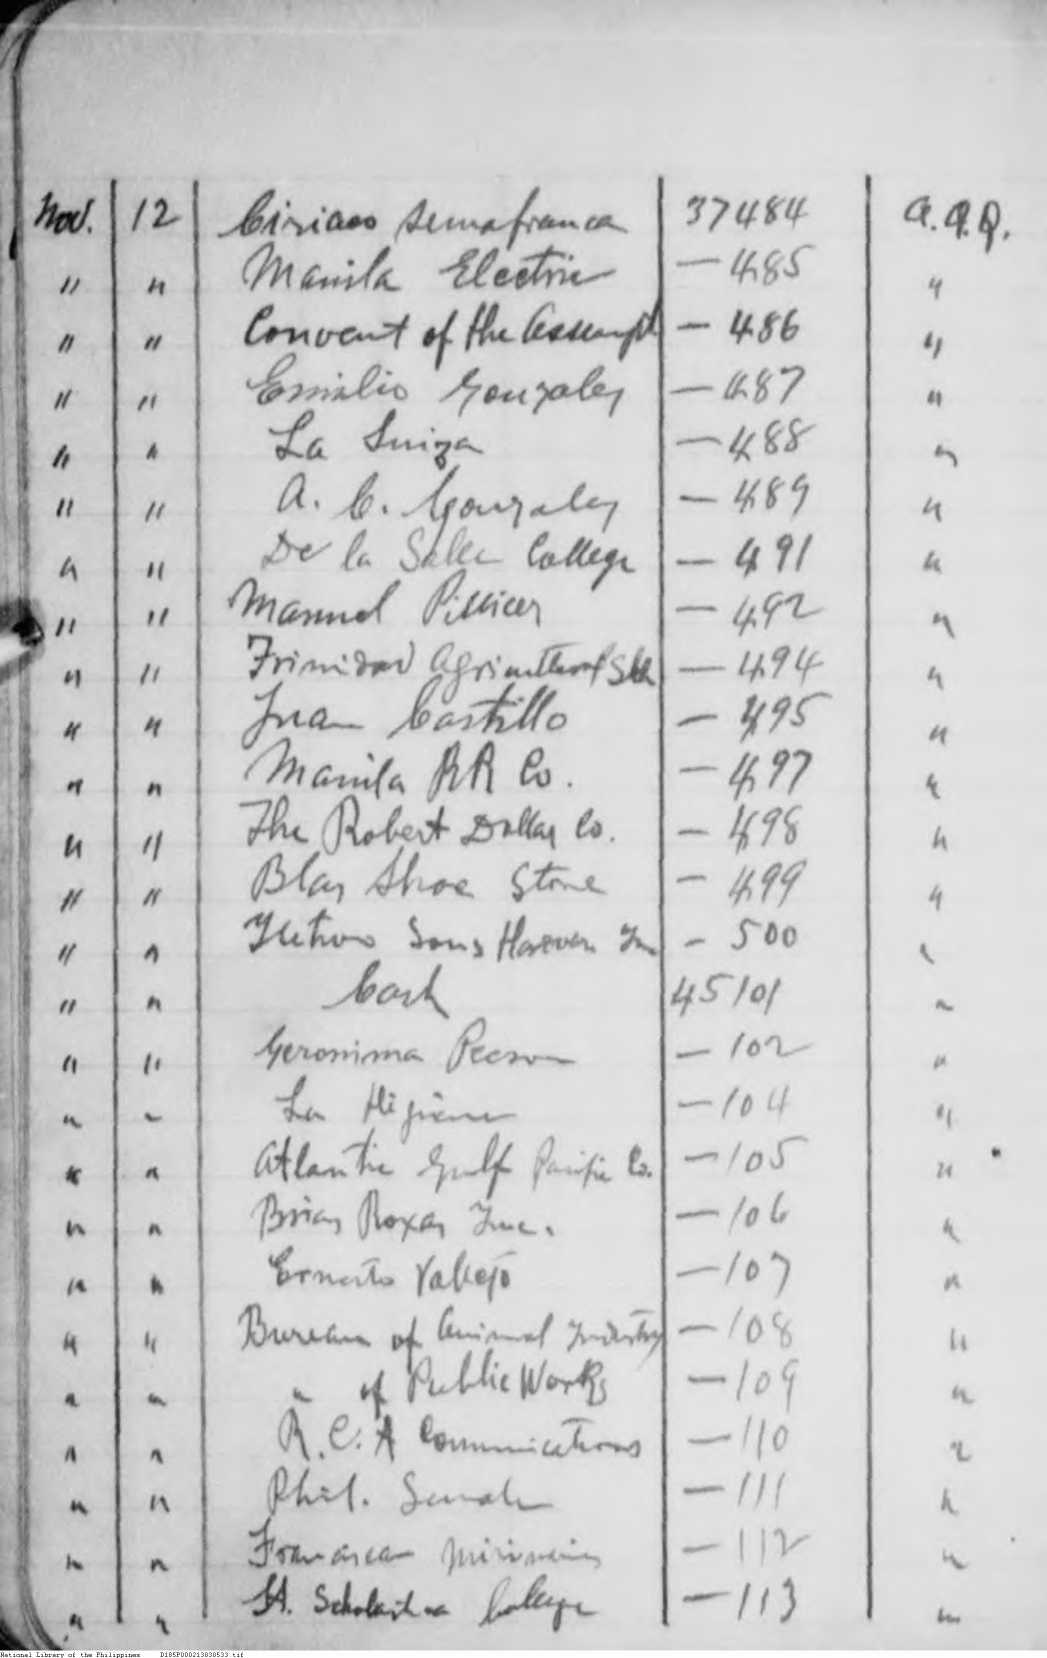 Nov. 12 Ciriaco Semafranca 37484 A.A.Q.
" " Manila Electric — 485 "
" " Convent of the Assumpt — 486 "
" " Emilio Gonzales — 487 "
" " La Suiza — 488 "
" " A. C. Gonzales — 489 "
" " De la Salle College — 491 "
" " Manuel Pellicer — 492 "
" " Trinidad Agricultural Sch — 494 "
" " Juan Castillo — 495 "
" " Manila RR Co. — 497 "
" " The Robert Dollar Co. — 498 "
" " Blas Shoe Store — 499 "
" " Sons — 500 "
" " Cash 45101 "
" " Geronima Pecson — 102 "
" " La — 104 "
" " Atlantic Gulf Pacific Co. — 105 "
" " Brias Roxas Inc. — 106 "
" " Ernesto Vallejo — 107 "
" " Bureau of Animal Industry — 108 "
" " " of Public Works — 109 "
" " R.C.A Communications — 110 "
" " Phil. Senate — 111 "
" " Franciscan Missionaries — 112 "
" " St. Scholastica College — 113 "
National Library of the Philippines D185P000213838533.tif